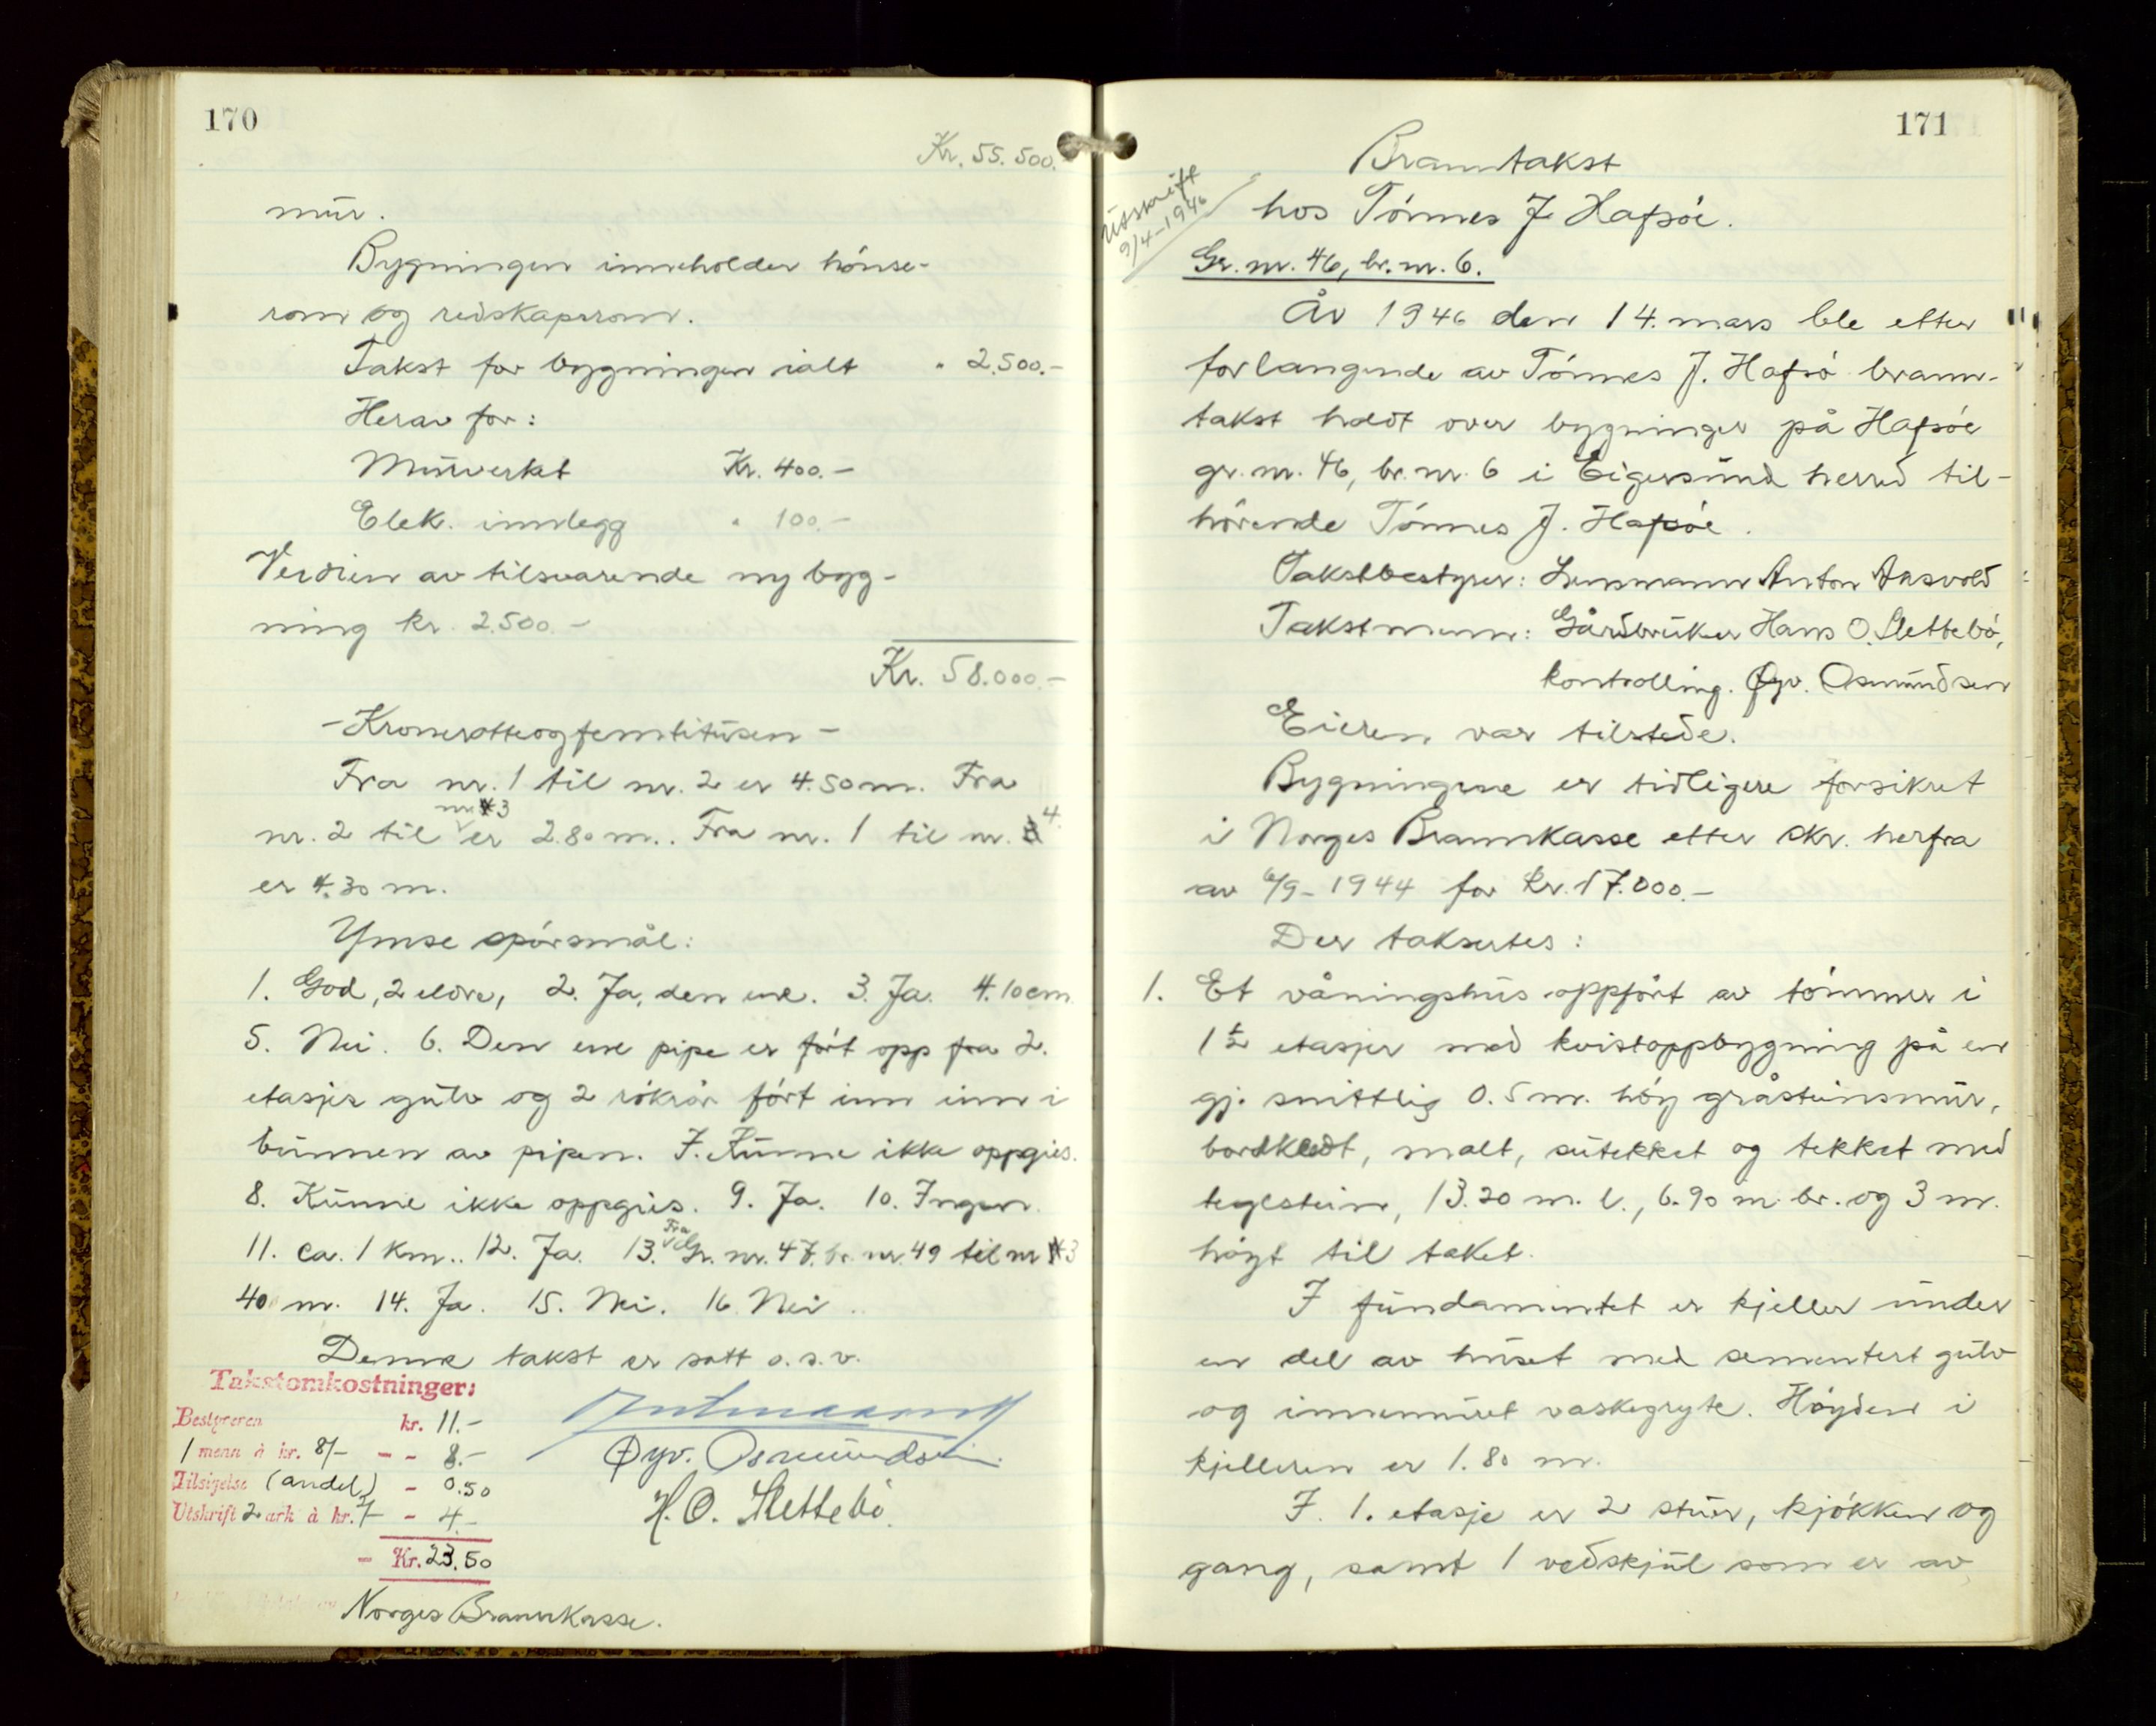 170
Kr. 55.500.-
mur.
Bygningen inneholder hönse-
rom og redskapsrom.
Takst for bygningen ialt " 2.500.-
Herav for:
Murverket Kr. 400.-
Elek. innlegg " 100.-
Verdien av tilsvarende ny byg-
ning kr. 2.500.-
Kr. 58.000.-
-Kronerotteogfemtitusen-
Fra nr. 1 til nr. 2 er 4.50 m. Fra
nr. 2 til nr. 3 er 2.80 m.. Fra nr. 1 til nr. 4
er 4.30 m.
Ymse spörsmål:
1. God, 2 eldre, 2. Ja, den ene. 3. Ja. 4. 10 cm
5. Nei. 6. Den ene pipe er fört opp fra 2.
etasjes gulv og 2 rökrör fört inn inn i
bunnen av pipen. 7. Kunne ikke oppgies.
8. Kunne ikke oppgies. 9. Ja. 10. Ingen.
11. ca. 1 km.. 12. Ja. 13. Fra Gr. nr. 47, br. nr. 49 til nr 3
40 m. 14. Ja. 15. Nei. 16. Nei.
Denne takst er satt o.s.v.
Takstomkostninger:
Bestyreren kr. 11.-
1 menn à kr. 8/- - - 8.-
Tilsigelse (andel) - 0.50
Utskrift 2 ark à kr. - 4.-
- Kr. 23.50
Øyv. Osmundsen.
H. O. Slettebö.
Norges Brannkasse.
171
Utskrift
9/4-1946
Branntakst
hos Tönnes J. Hafsöe.
Gr. nr. 46, br. nr. 6.
År 1946 den 14. mars ble etter
forlangende av Tönnes J. Hafsö brann-
takst holdt over bygninger på Hafsöe
gr. nr. 46, br. nr. 6 i Eigersund herred til-
hörende Tönnes J. Hafsöe.
Takstbestyrer: Lensmann Anton Aasvold
Takstmenn: Gårdbruker Hans O. Slettebö,
kontrolling. Øyv. Osmundsen
Eieren var tilstede.
Bygningene er tidligere forsikret
i Norges Brannkasse etter skr. herfra
av 6/9-1944 for kr. 17.000.-
Der taksertes:
1. Et våningshus oppfört av tömmer i
1 1/2 etasjer med kvistoppbygning på en
gj. snittlig 0.5 m. höy gråsteinsmur,
bordkledt, malt, sutekket og tekket med
teglstein, 13.20 m. l., 6.90 m. br. og 3 m.
höyt til taket.
I fundamentet er kjeller under
en del av huset med sementert gulv
og innemuret vaskegryte. Höyden i
kjelleren er 1.80 m.
I 1. etasje er 2 stuer, kjökken og
gang, samt 1 vedskjul som er av